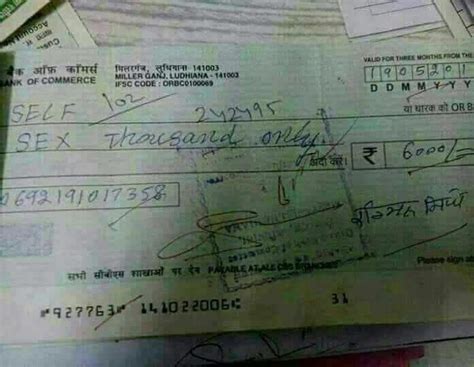 बैंक ऑफ़ कॉमर्स
BANK OF COMMERCE
मिलरगंज, लुधियाना 141003
MILLER GANJ, LUDHIANA - 141003
IFSC CODE : ORBC0100069
VALID FOR THREE MONTHS FROM THE
190520
DDMMYY
SELF 102
242495
या धारक को OR
SEX Thousand only
अदा करें
₹ 6000/-
06921910173
सभी सीबीएस शाखाओं पर देय PAYABLE AT ALL CBS BRANCHES
Please sign
927763 141022006 31